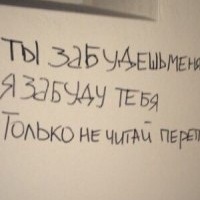 ТЫ ЗАБУДЕШЬ МЕНЯ
Я ЗАБУДУ ТЕБЯ
ТОЛЬКО НЕ ЧИТАЙ